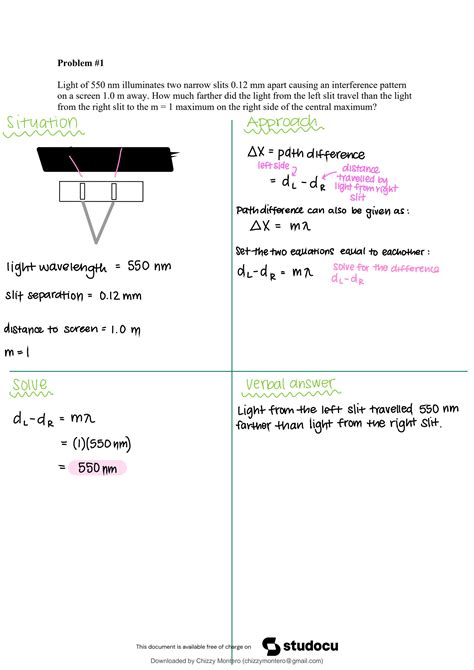 Problem #1
Light of 550 nm illuminates two narrow slits 0.12 mm apart causing an interference pattern
on a screen 1.0 m away. How much farther did the light from the left slit travel than the light
from the right slit to the m = 1 maximum on the right side of the central maximum?
Situation
light wavelength = 550 nm
slit separation = 0.12 mm
distance to screen = 1.0 m
m = 1
Approach
ΔX = path difference
left side
= dL - dR
distance
travelled by
light from right
slit
Path difference can also be given as:
ΔX = mλ
Set the two equations equal to eachother:
dL-dR = mλ
solve for the difference
dL-dR
Solve
dL-dR = mλ
= (1)(550 nm)
= 550 nm
Verbal answer
Light from the left slit travelled 550 nm
farther than light from the right slit.
This document is available free of charge on
studocu
Downloaded by Chizzy Montero (chizzymontero@gmail.com)